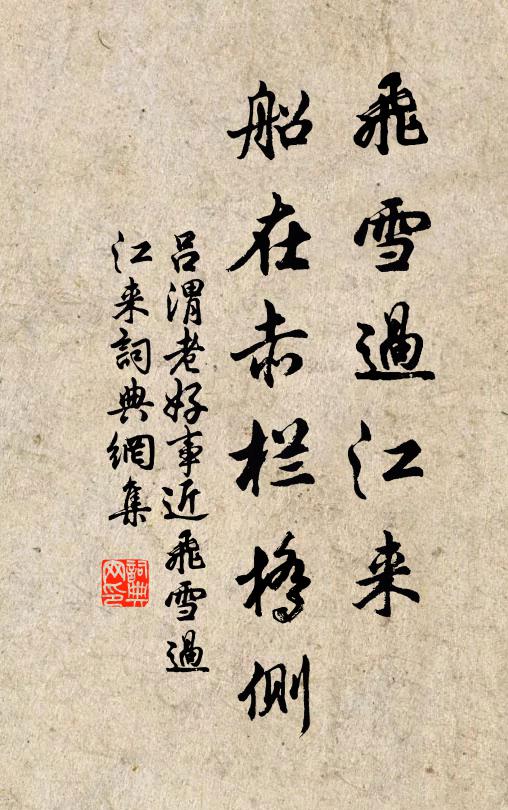 飛雪過江来
船在赤栏橋側
呂渭老好事近飛雪過
江来詞典網集
詞典
网印